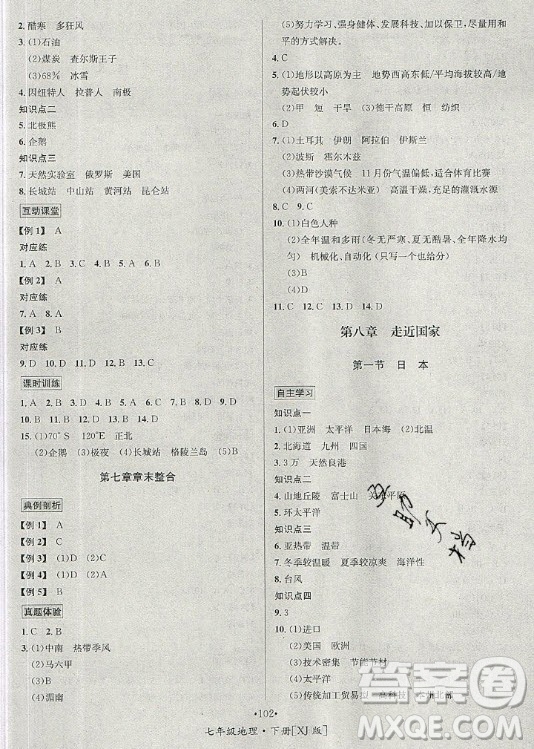 2. 酷寒 多狂风
3. (1)石油
(2)煤炭 查尔斯王子
(3)68% 冰雪
4. 因纽特人 拉普人 南极
知识点二
5. 北极熊
6. 企鹅
知识点三
7. 天然实验室 俄罗斯 美国
8. 长城站 中山站 黄河站 昆仑站
互动课堂
【例1】 A
对应练
1. A 2. B 3. C 4. A
【例2】 A
对应练
5. A 6. D 7. D 8. A
【例3】 B
对应练
9. D 10. A 11. D 12. D
课时训练
1. A 2. C 3. D 4. D 5. A 6. B 7. C 8. D 9. A
10. B 11. B 12. D 13. A 14. D
15. (1)70°S 120°E 正北
(2)企鹅 (3)极夜 (4)长城站 格陵兰岛 (5)B
第七章章末整合
典例剖析
【例1】 A
【例2】 A
【例3】 (1)D (2)C
【例4】 (1)D (2)A
【例5】 D
真题体验
1. C 2. B
3. (1)中南 热带季风
(2)马六甲
(3)
(4)湄南
(5)努力学习,强身健体,发展科技,加以保卫,尽量用和
平的方式解决。
4. C
5. (1)地形以高原为主 地势西高东低(平均海拔较高/地
势起伏较小)
(2)甲 短 干旱
(3)C
6. D
7. (1)土耳其 伊朗 阿拉伯 伊斯兰
(2)波斯 霍尔木兹
(3)热带沙漠气候 11月份气温偏低,适宜体育比赛
(4)两河(美索不达米亚) 高温干燥,充足的灌溉水源
8. C 9. C
10. (1)白色人种
(2)全年温和多雨(冬无严寒、夏无酷暑、全年降水均
匀) 机械化、自动化(只写一个也给分)
(3)
(4)D
11. C 12. D 13. D 14. C
第八章 走近国家
第一节 日本
自主学习
知识点一
1. (1)亚洲 太平洋 日本海 (2)北温
2. 北海道 九州 四国
3. 3万 天然良港
知识点二
4. 山地丘陵 富士山 关东平原
5. 环太平洋
知识点三
6. 亚热带 温带
7. 冬季较温暖 夏季较凉爽 海洋性
8. 台风
知识点四
9. 3
10. (1)进口
(2)美国 欧洲
(3)技术密集 节能节材
(4)太平洋
(5)传统加工贸易型
·102·
七年级地理·下册[XJ版]
答案圈
MXQE.COM